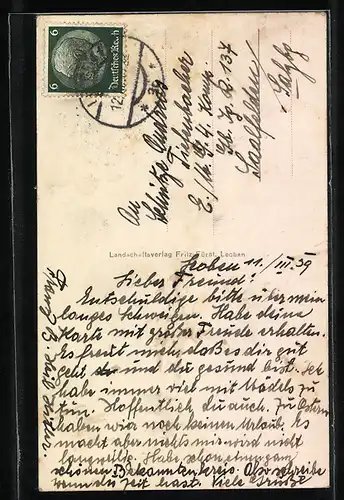 6 6
Deutsches Reich
12.
An
Schütze
Tiefenbacher
E./M.G.4. Komp.
Gd. Jg. R. 137
Saalfelden
Salzb.
Landschaftsverlag Fritz Fürst, Leoben
Leoben 11./III.39
Lieber Freund!
Entschuldige bitte über mein
langes Schweigen. Habe deine
Karte mit großer Freude erhalten.
Es freut mich daßes dir gut
geht und du gesund bist. Ich
habe immer viel mit Mädels zu
tun. Hoffentlich du auch. Zu Ostern
haben wir noch keinen Urlaub. Es
macht aber nichts mir wird nicht
langweilig. Habe schon einen ganz
schönen Bekanntenkreis. Also schreibe
wenn du Zeit hast. Viele Grüße
Franz